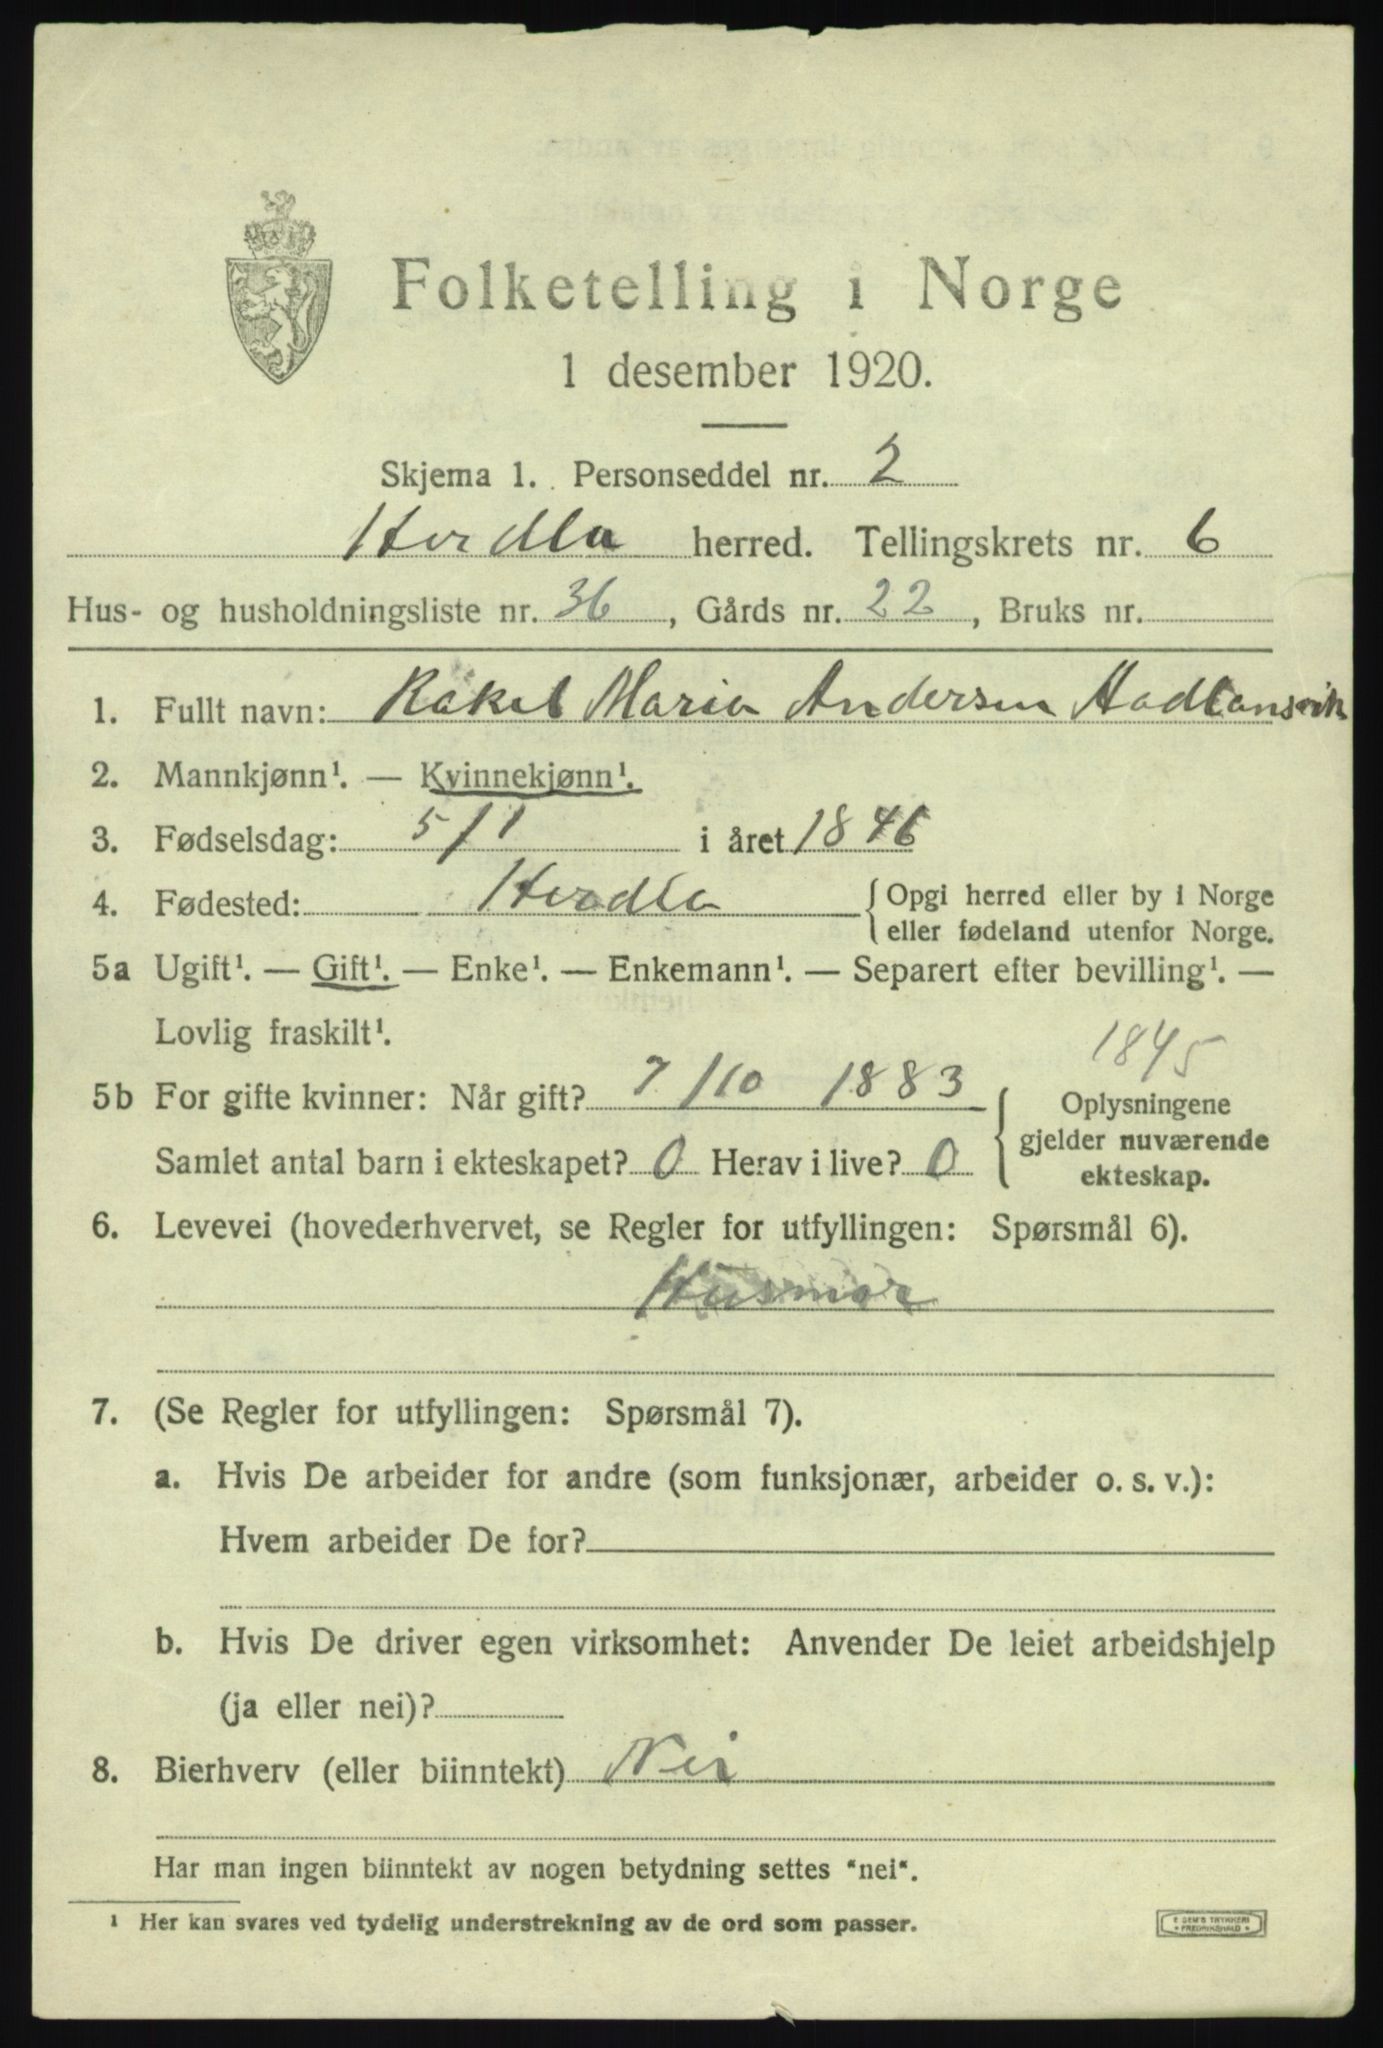 Folketelling i Norge
1 desember 1920.
Skjema 1. Personseddel nr. 2
Herdla herred. Tellingskrets nr. 6
Hus- og husholdningsliste nr. 36, Gårds nr. 22, Bruks nr.
1. Fullt navn: Rakel Maria Andersen Hadlansvik
2. Mannkjønn¹. — Kvinnekjønn¹.
3. Fødselsdag: 5/1 i året 1846
4. Fødested: Herdla { Opgi herred eller by i Norge
eller fødeland utenfor Norge.
5a Ugift¹. — Gift¹. — Enke¹. — Enkemann¹. — Separert efter bevilling¹. —
Lovlig fraskilt¹.
1845
5b For gifte kvinner: Når gift? 7/10 1883 { Oplysningene
gjelder nuværende
Samlet antal barn i ekteskapet? 0 Herav i live? 0
ekteskap.
6. Levevei (hovederhvervet, se Regler for utfyllingen: Spørsmål 6).
Husmor
7. (Se Regler for utfyllingen: Spørsmål 7).
a. Hvis De arbeider for andre (som funksjonær, arbeider o. s. v.):
Hvem arbeider De for?
b. Hvis De driver egen virksomhet: Anvender De leiet arbeidshjelp
(ja eller nei)?
8. Bierhverv (eller biinntekt) Nei
Har man ingen biinntekt av nogen betydning settes "nei".
¹ Her kan svares ved tydelig understrekning av de ord som passer.
E SEM'S TRYKKERI
* FREDRIKSHALD *